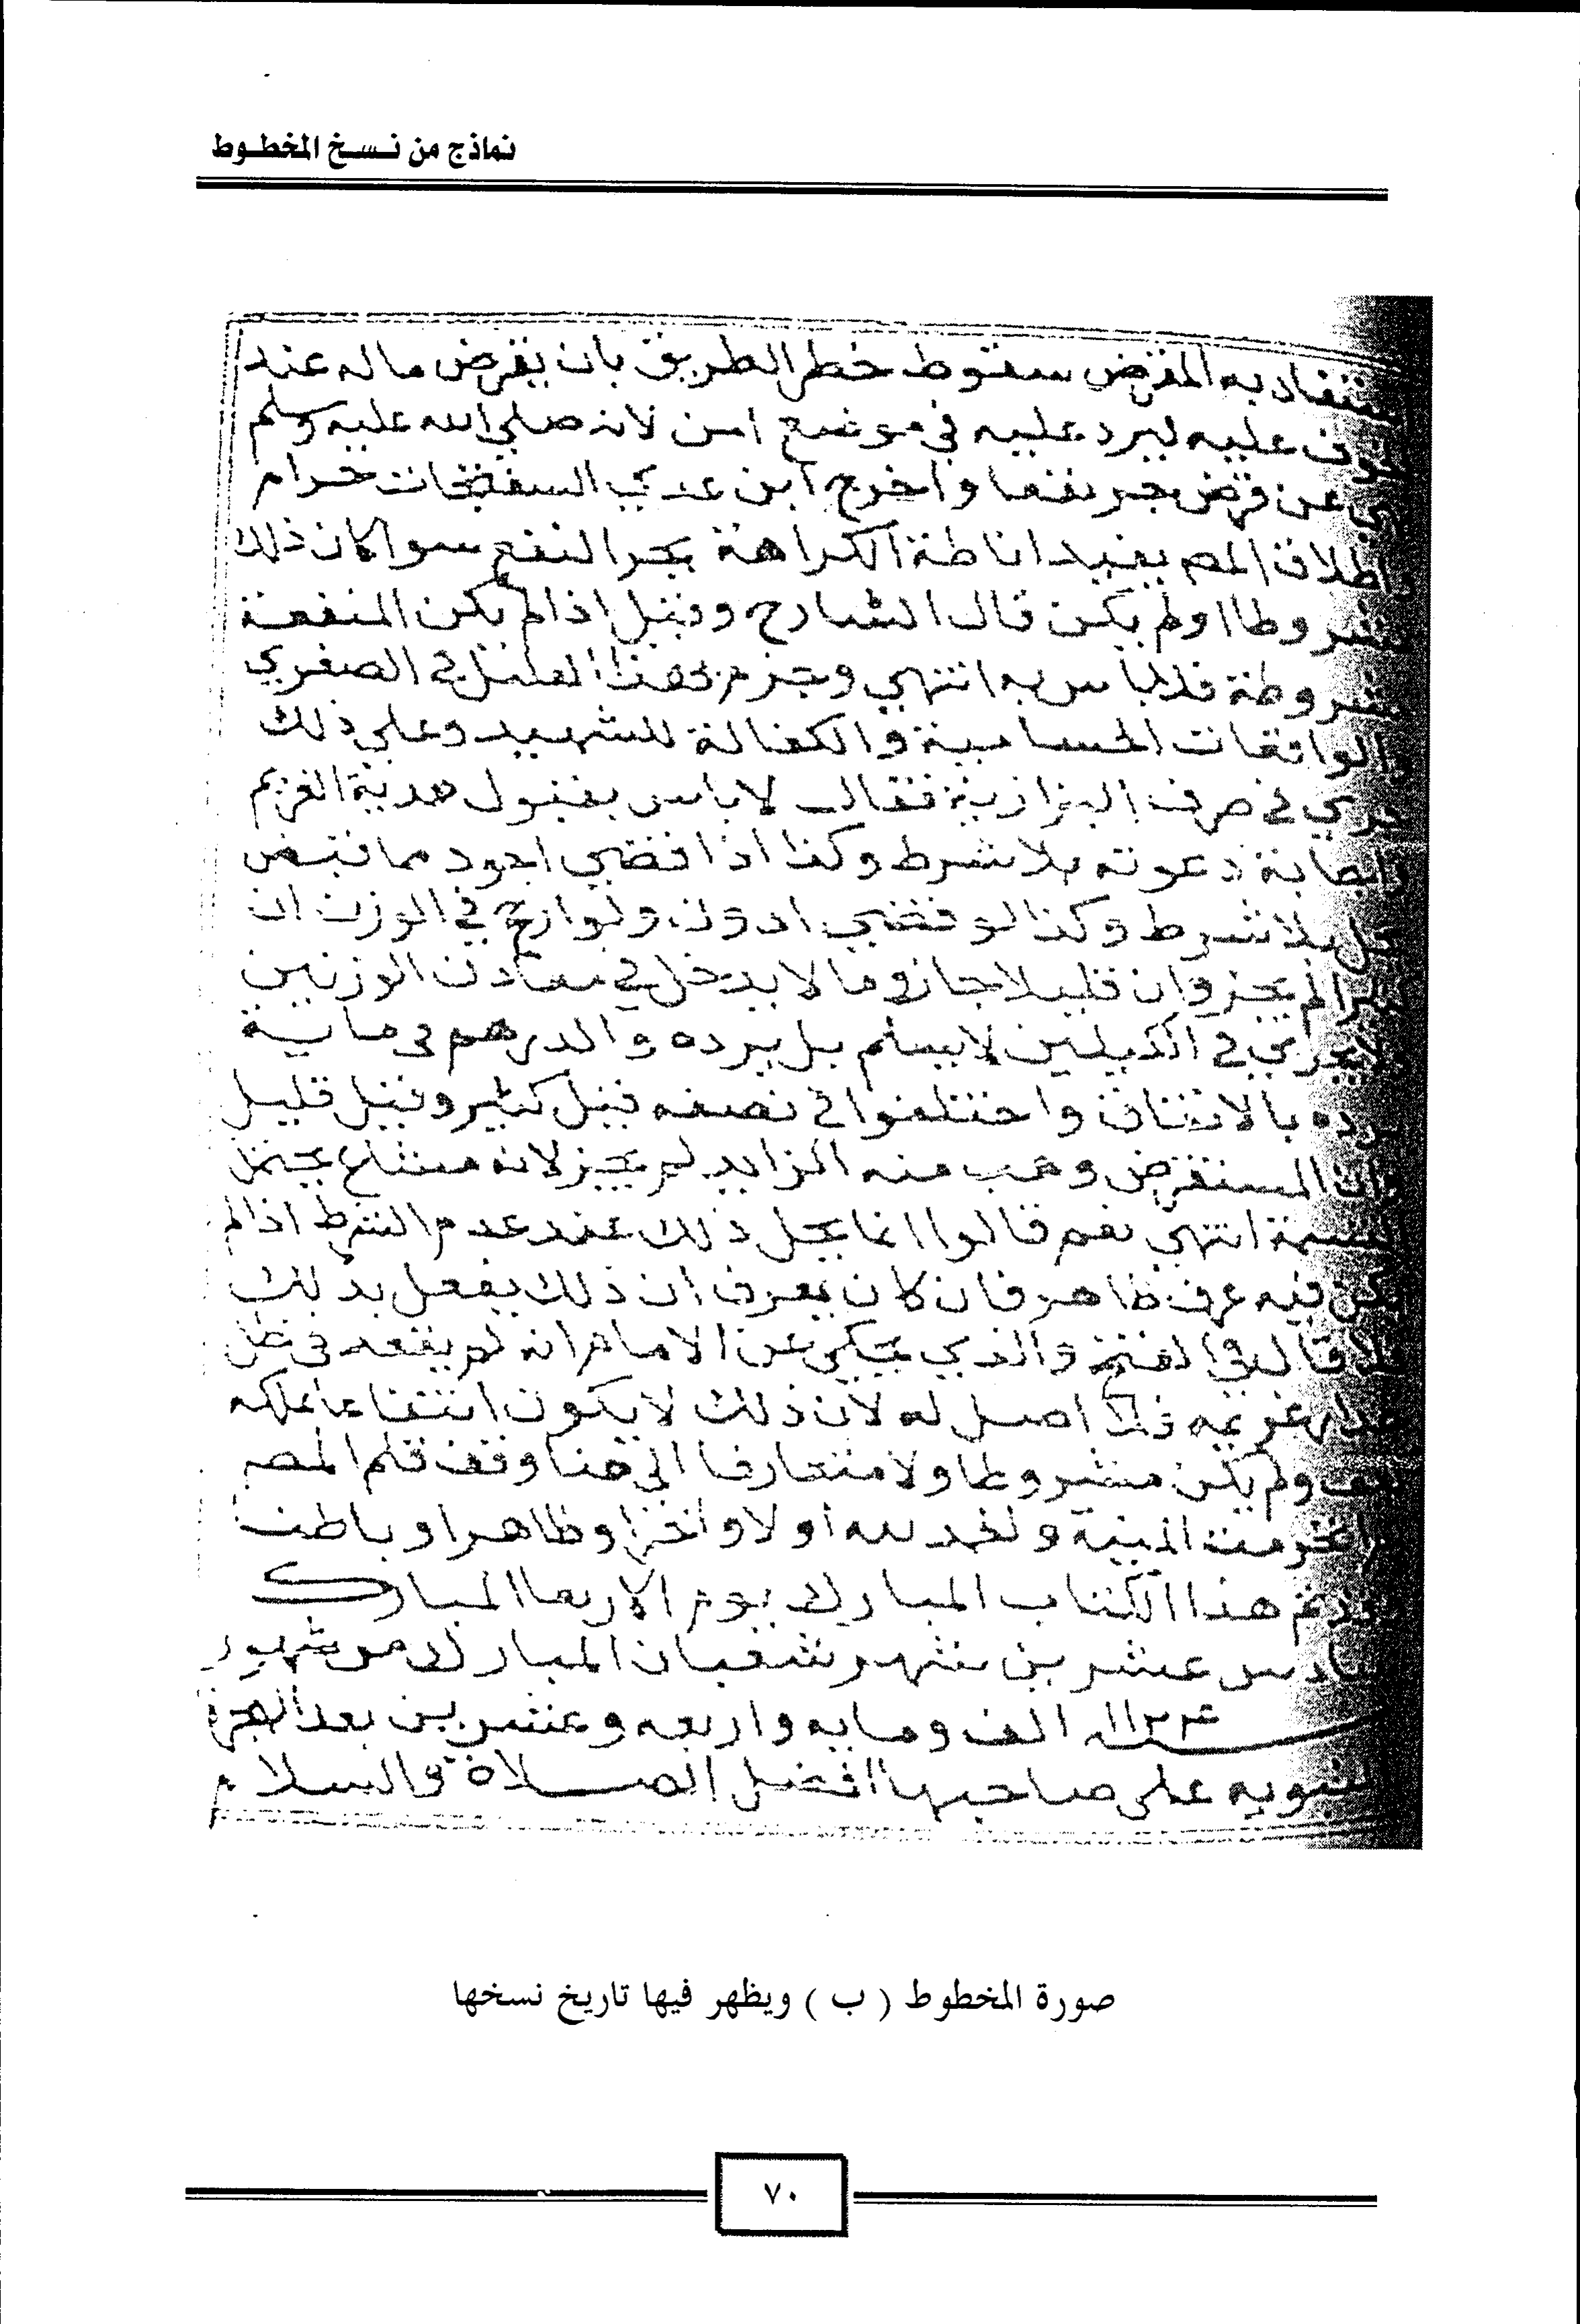 نماذج من نسخ المخطوط
به المقرض سقوط خطر الطريق بان يقرض ماله عند
عليه ليرد عليه في موضع امن لانه صلي الله عليه وسلم
عن قرض جر نفعا واخرج ابن عدي السفتجات حرام
المص يفيد اناطة الكراهة بجر النفع سوا كان ذلك
اولم يكن قال الشارح وقيل اذا لم يكن المنفعة
فلا باس به انتهي وجزم بهذا القيل في الصغري
الواقعات الحسامية والكفالة للشهيد وعلي ذلك
في صرف البزازية فقال لا باس بقبول هدية الغريم
دعوته بلا شرط وكذا اذا قضي اجود مما قبض
بلا شرط وكذا لو قضي ادون ولو ارجح في الوزن ان
لم يجز وان قليلا جاز وما لا يدخل في الوزنين
في الكيلين لا يسلم بل يرده والدرهم في ماية
بالاتفاق واختلفوا في نصفه قيل كثير وقيل قليل
المستقرض وهب منه الزايد لم يجز لانه مشاع يحتمل
انتهي نعم قالوا انما يحل ذلك عند عدم الشرط اذا لم
فيه عرف ظاهر فان كان يعرف ان ذلك يفعل بذلك
قال في الفتح والذي يحكي عن الامام انه لم يقعد في ظل
غريمه فلا اصل له لان ذلك لا يكون انتفاعا بملكه
ولم يكن مشروطا ولا متعارفا الي هنا وقف قلم المص
المنية والحمد لله اولا واخرا وظاهرا وباطنا
هذا الكتاب المبارك يوم الاربعا المبارك
عشرين شهر شعبان المبارك من شهور
سنة ١١٢٤ الف ومايه واربعه وعشرين بعد الهجرة
على صاحبها افضل الصلاة والسلام
صورة المخطوط ( ب ) ويظهر فيها تاريخ نسخها
٧٠